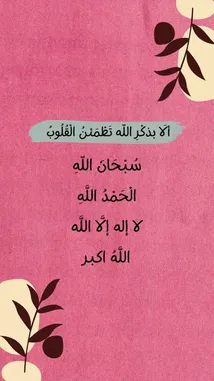 ألا بذكْرِ اللّه تَطْمَئنُ الْقُلُوبُ
سُبْحَانَ اللّهِ
الْحَمْدُ اللَّهِ
لا إله إلَّا اللَّه
اللَّهُ اكبر